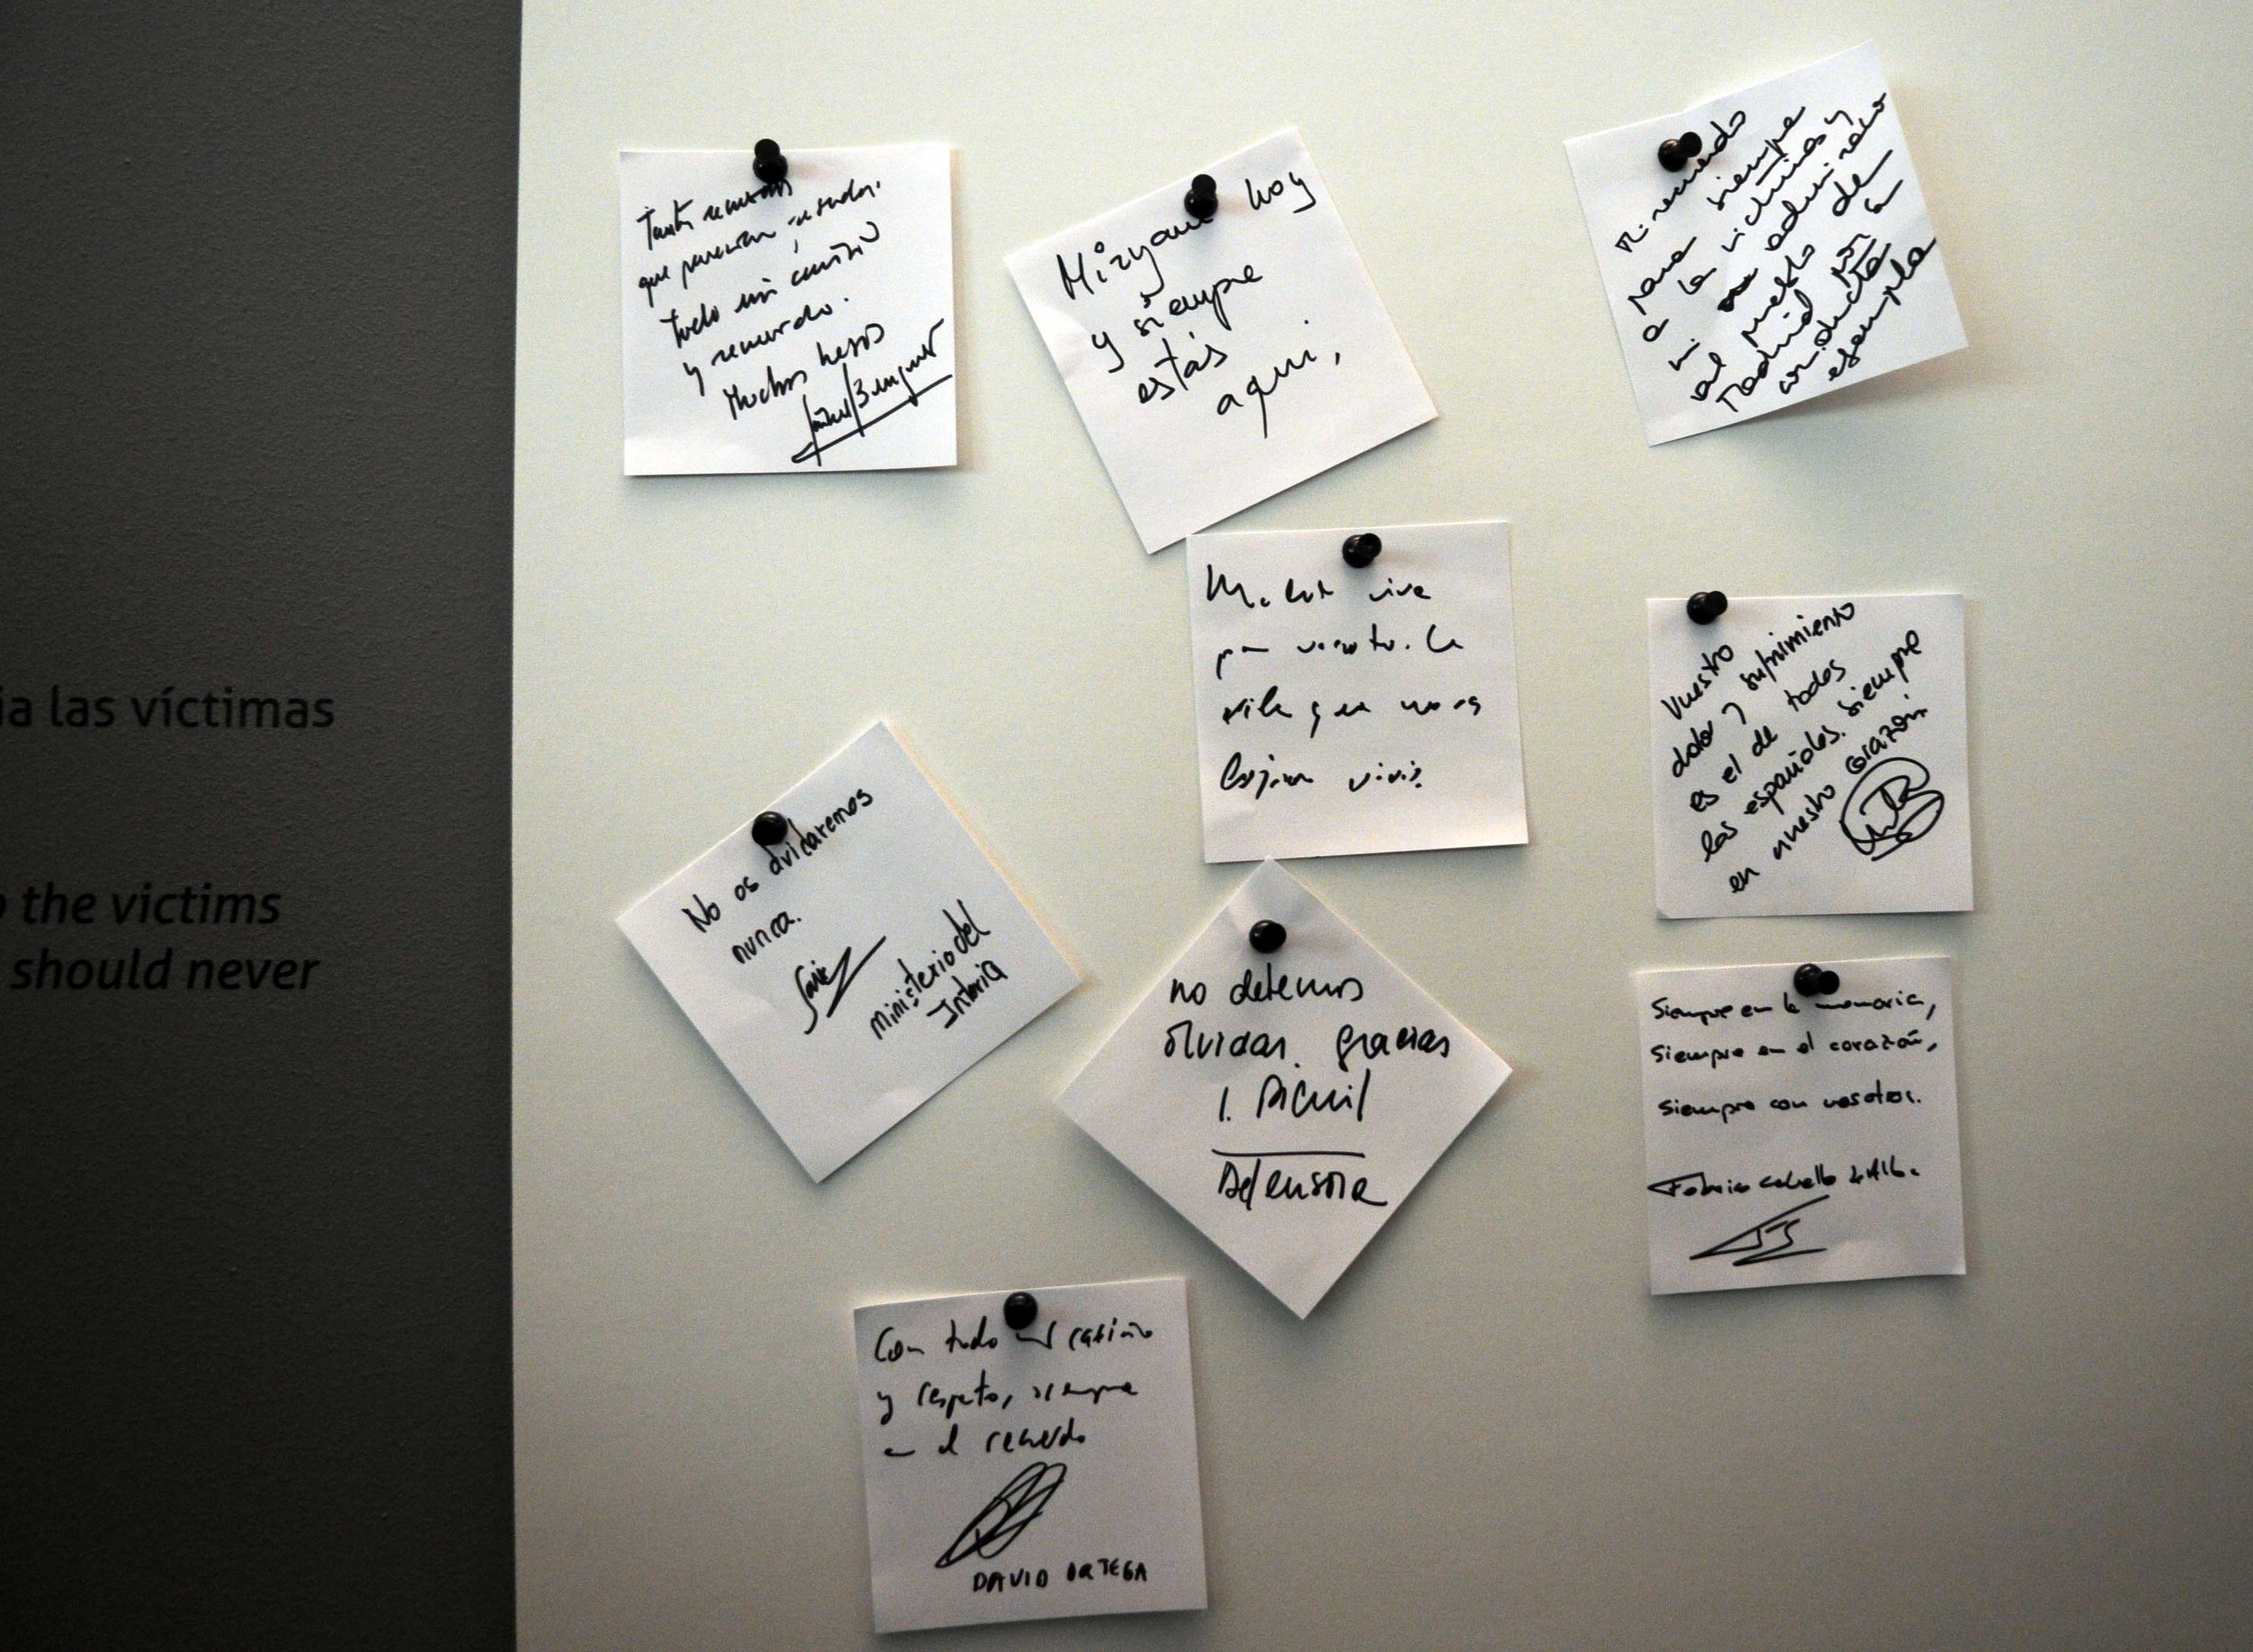 ia las víctimas
the victims
should never
que parecían
todo mi cariño
y recuerdo.
Muchos besos
Miryam hoy
y siempre
estás
aquí,
Mi recuerdo
para siempre
a la víctimas y
mi admiración
al pueblo de
Madrid por su
conducta
ejemplar
vive
que no os
dejaron vivir
Vuestro
dolor y sufrimiento
es el de todos
los españoles. Siempre
en nuestro corazón
No os olvidaremos
nunca.
Ministerio del
Interior
no debemos
olvidar. gracias
Defensora
Siempre en la memoria,
siempre en el corazón,
siempre con vosotros.
Con todo mi cariño
y respeto, siempre
en el recuerdo
DAVID ORTEGA